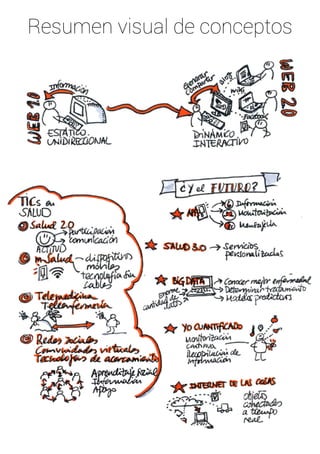 Resumen visual de conceptos
WEB 1.0
Información
ESTÁTICO
UNIDIRECCIONAL
Generar
Compartir
Blog
Apps
Facebook
WEB 2.0
DINÁMICO
INTERACTIVO
TICs en
SALUD
① Salud 2.0
ACTIVO
→ Participación
→ comunicación
② m-Salud
→ dispositivos
móviles
tecnología sin
cables
③ Telemedicina
Teleenfermería
④ Redes Sociales
Comunidades virtuales
Tecnologías de acercamiento
Aprendizaje Social
Información
Apoyo
¿Y el FUTURO?
★ APPs
Información
Monitorización
★ SALUD 3.0 → Servicios
personalizados
★ BIG DATA
→ Conocer mejor enfermedad
→ Determinar tratamiento
→ Modelos predictores
cantidades
de datos
★ YO CUANTIFICADO
Monitorización
continua
Recopilación de
información
★ INTERNET DE LAS COSAS
objetos
conectados
a tiempo
real